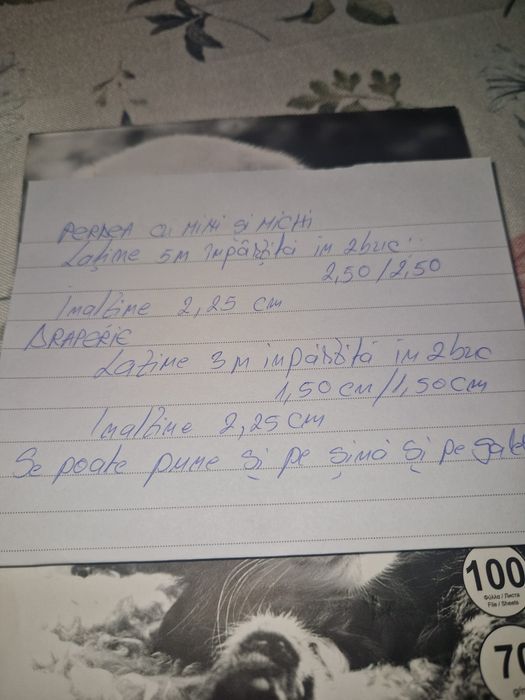 PERDEA CU MIMI și MICHI
Lațime 5m împărțită în 2buc:
2,50/2,50
Inalțime 2,25 cm
DRAPERIE
Lațime 3m împărțită în 2buc
1,50cm/1,50cm
Inalțime 2,25cm
Se poate pune și pe șină și pe
100
Φύλλα / Листа
File / Sheets
70